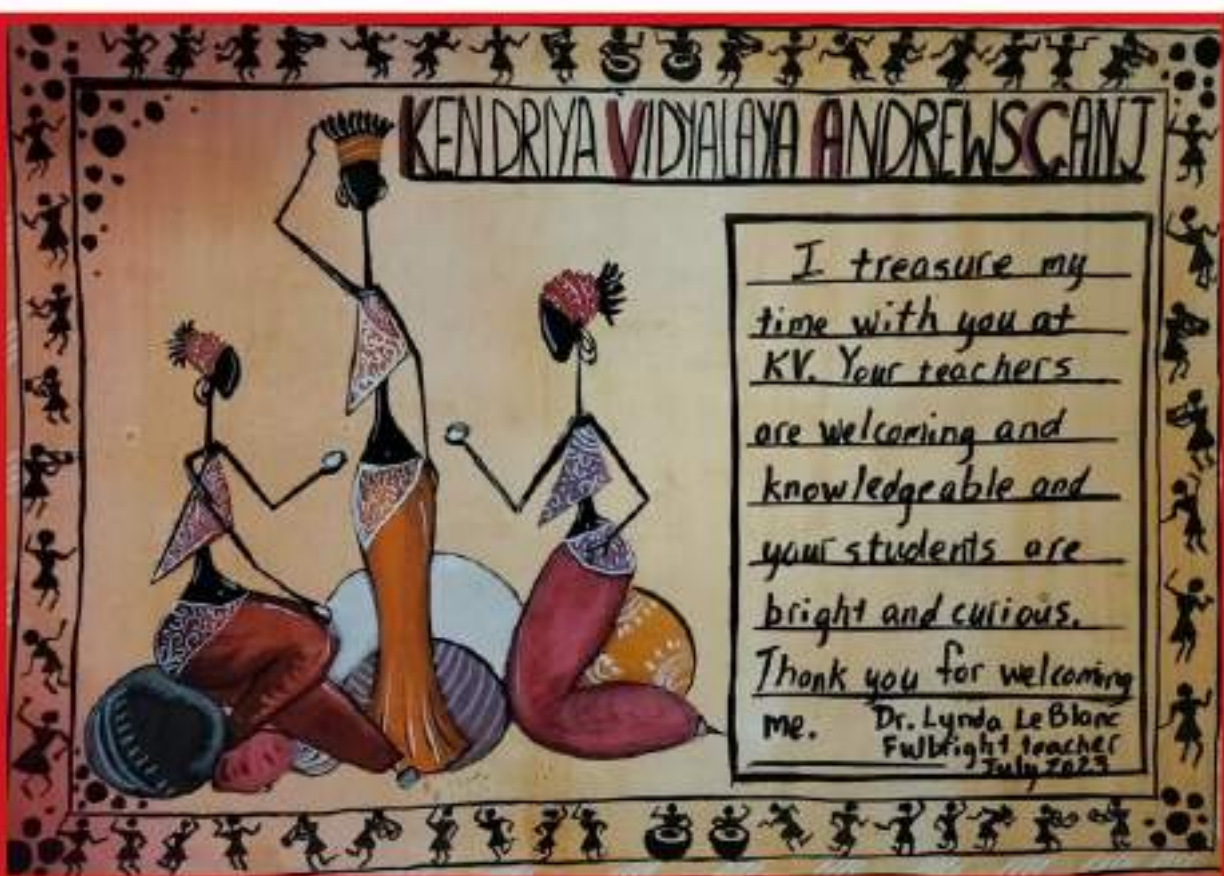 KENDRIYA VIDYALAYA ANDREWSGANJ
I treasure my
time with you at
KV. Your teachers
are welcoming and
knowledgeable and
your students are
bright and curious.
Thank you for welcoming
me. Dr. Lynda LeBlanc
Fulbright teacher
July 2023